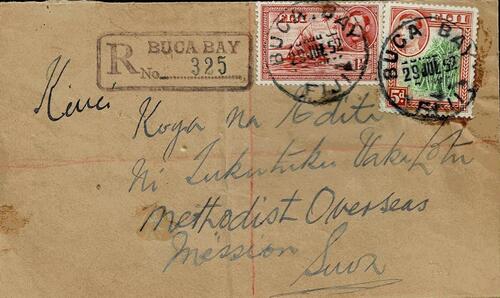 R BUCA BAY
No. 325
FIJI
BUCA BAY
29 JUL 52
FIJI
FIJI
5D
BUCA BAY
29 JUL 52
FIJI
Koya na Edita
Ni Tukutuku Vaka Lotu
Methodist Overseas
Mission Suva